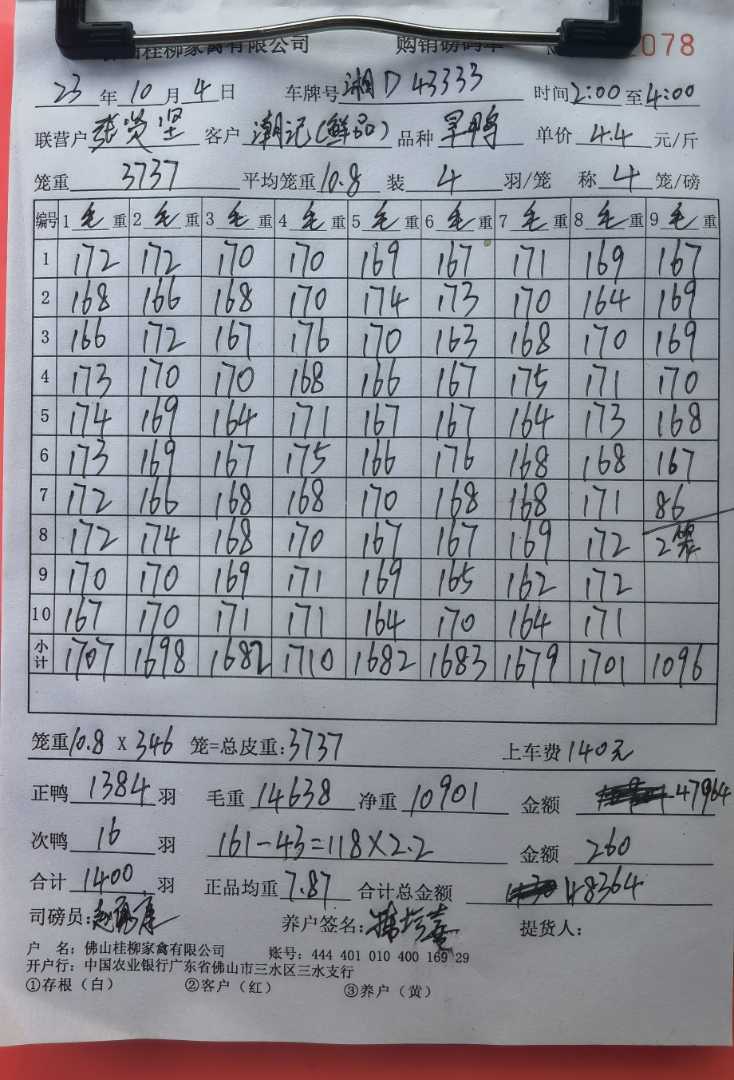 佛山桂柳家禽有限公司 购销磅码单 2078
23年10月4日 车牌号湘D43333 时间2:00至4:00
联营户张贤坚 客户潮记(鲜品) 品种旱鸭 单价4.4元/斤
笼重3737 平均笼重10.8 装4羽/笼 称4笼/磅
编号 1毛重 2毛重 3毛重 4毛重 5毛重 6毛重 7毛重 8毛重 9毛重
1 172 172 170 170 169 167 171 169 167
2 168 166 168 170 174 173 170 164 169
3 166 172 167 176 170 163 168 170 169
4 173 170 170 168 166 167 175 171 170
5 174 169 164 171 167 167 164 173 168
6 173 169 167 175 166 176 168 168 167
7 172 166 168 168 170 168 168 171 86
8 172 174 168 170 167 167 169 172 2笼
9 170 170 169 171 169 165 162 172
10 167 170 171 171 164 170 164 171
小计 1707 1698 1682 1710 1682 1683 1679 1701 1096
笼重10.8 X 346 笼=总皮重:3737 上车费140元
正鸭1384羽 毛重14638 净重10901 金额47964
次鸭16羽 161-43=118×2.2 金额260
合计1400羽 正品均重7.87 合计总金额48364
司磅员: 养户签名: 提货人:
户 名:佛山桂柳家禽有限公司 账号:444 401 010 400 169 29
开户行:中国农业银行广东省佛山市三水区三水支行
①存根(白) ②客户(红) ③养户(黄)